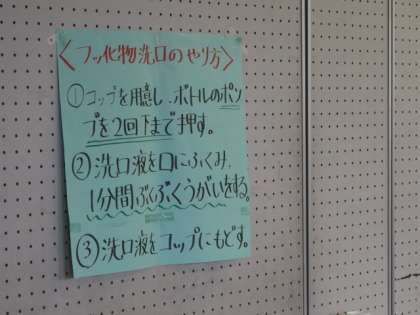 ＜フッ化物洗口のやり方＞
①コップを用意し、ボトルのポン
プを2回下まで押す。
②洗口液を口にふくみ、
1分間ぶくぶくうがいをする。
③洗口液をコップにもどす。